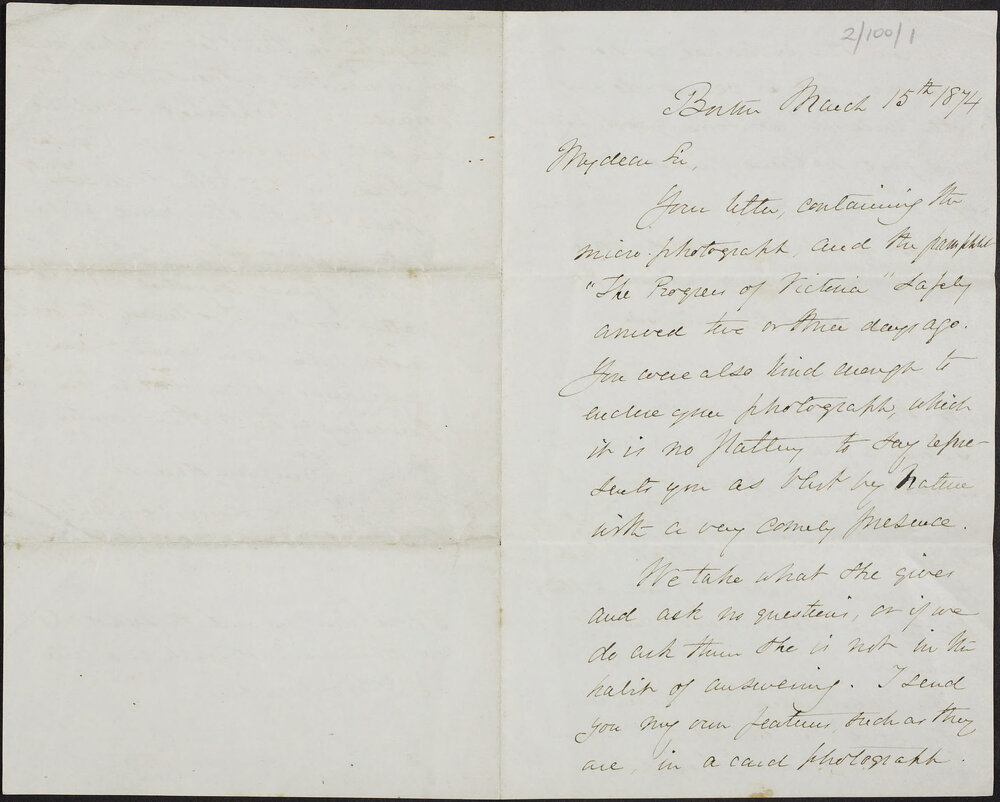 2/100/1
Boston March 15th 1874
My dear Sir,
Your letter, containing the
micro photograph, and the pamphlet
"The Progress of Victoria" safely
arrived two or three days ago.
You were also kind enough to
enclose your photograph, which
it is no flattery to say repre-
sents you as blest by Nature
with a very comely presence.
We take what she gives
and ask no questions, or if we
do ask them she is not in the
habit of answering. I send
you my own features, such as they
are, in a card photograph.